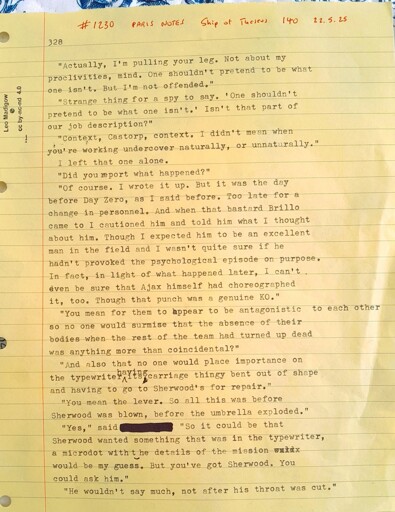 #1230 PARIS NOTES Ship of Theseus 140 22.5.25
328
Leo Marlgow
cc by-nc-nd 4.0
"Actually, I'm pulling your leg. Not about my
proclivities, mind. One shouldn't pretend to be what
one isn't. But I'm not offended."
"Strange thing for a spy to say. 'One shouldn't
pretend to be what one isn't.' Isn't that part of
our job description?"
"Context, Castorp, context. I didn't mean when
you're working undercover naturally, or unnaturally."
I left that one alone.
"Did you report what happened?"
"Of course. I wrote it up. But it was the day
before Day Zero, as I said before. Too late for a
change in personnel. And when that bastard Brillo
came to I cautioned him and told him what I thought
about him. Though I expected him to be an excellent
man in the field and I wasn't quite sure if he
hadn't provoked the psychological episode on purpose.
In fact, in light of what happened later, I can't
even be sure that Ajax himself had choreographed
it, too. Though that punch was a genuine KO."
"You mean for them to appear to be antagonistic to each other
so no one would surmise that the absence of their
bodies when the rest of the team had turned up dead
was anything more than coincidental?"
"And also that no one would place importance on
the typewriter having its carriage thingy bent out of shape
and having to go to Sherwood's for repair."
"You mean the lever. So all this was before
Sherwood was blown, before the umbrella exploded."
"Yes," said "So it could be that
Sherwood wanted something that was in the typewriter,
a microdot with the details of the mission
would be my guess. But you've got Sherwood. You
could ask him."
"He wouldn't say much, not after his throat was cut."